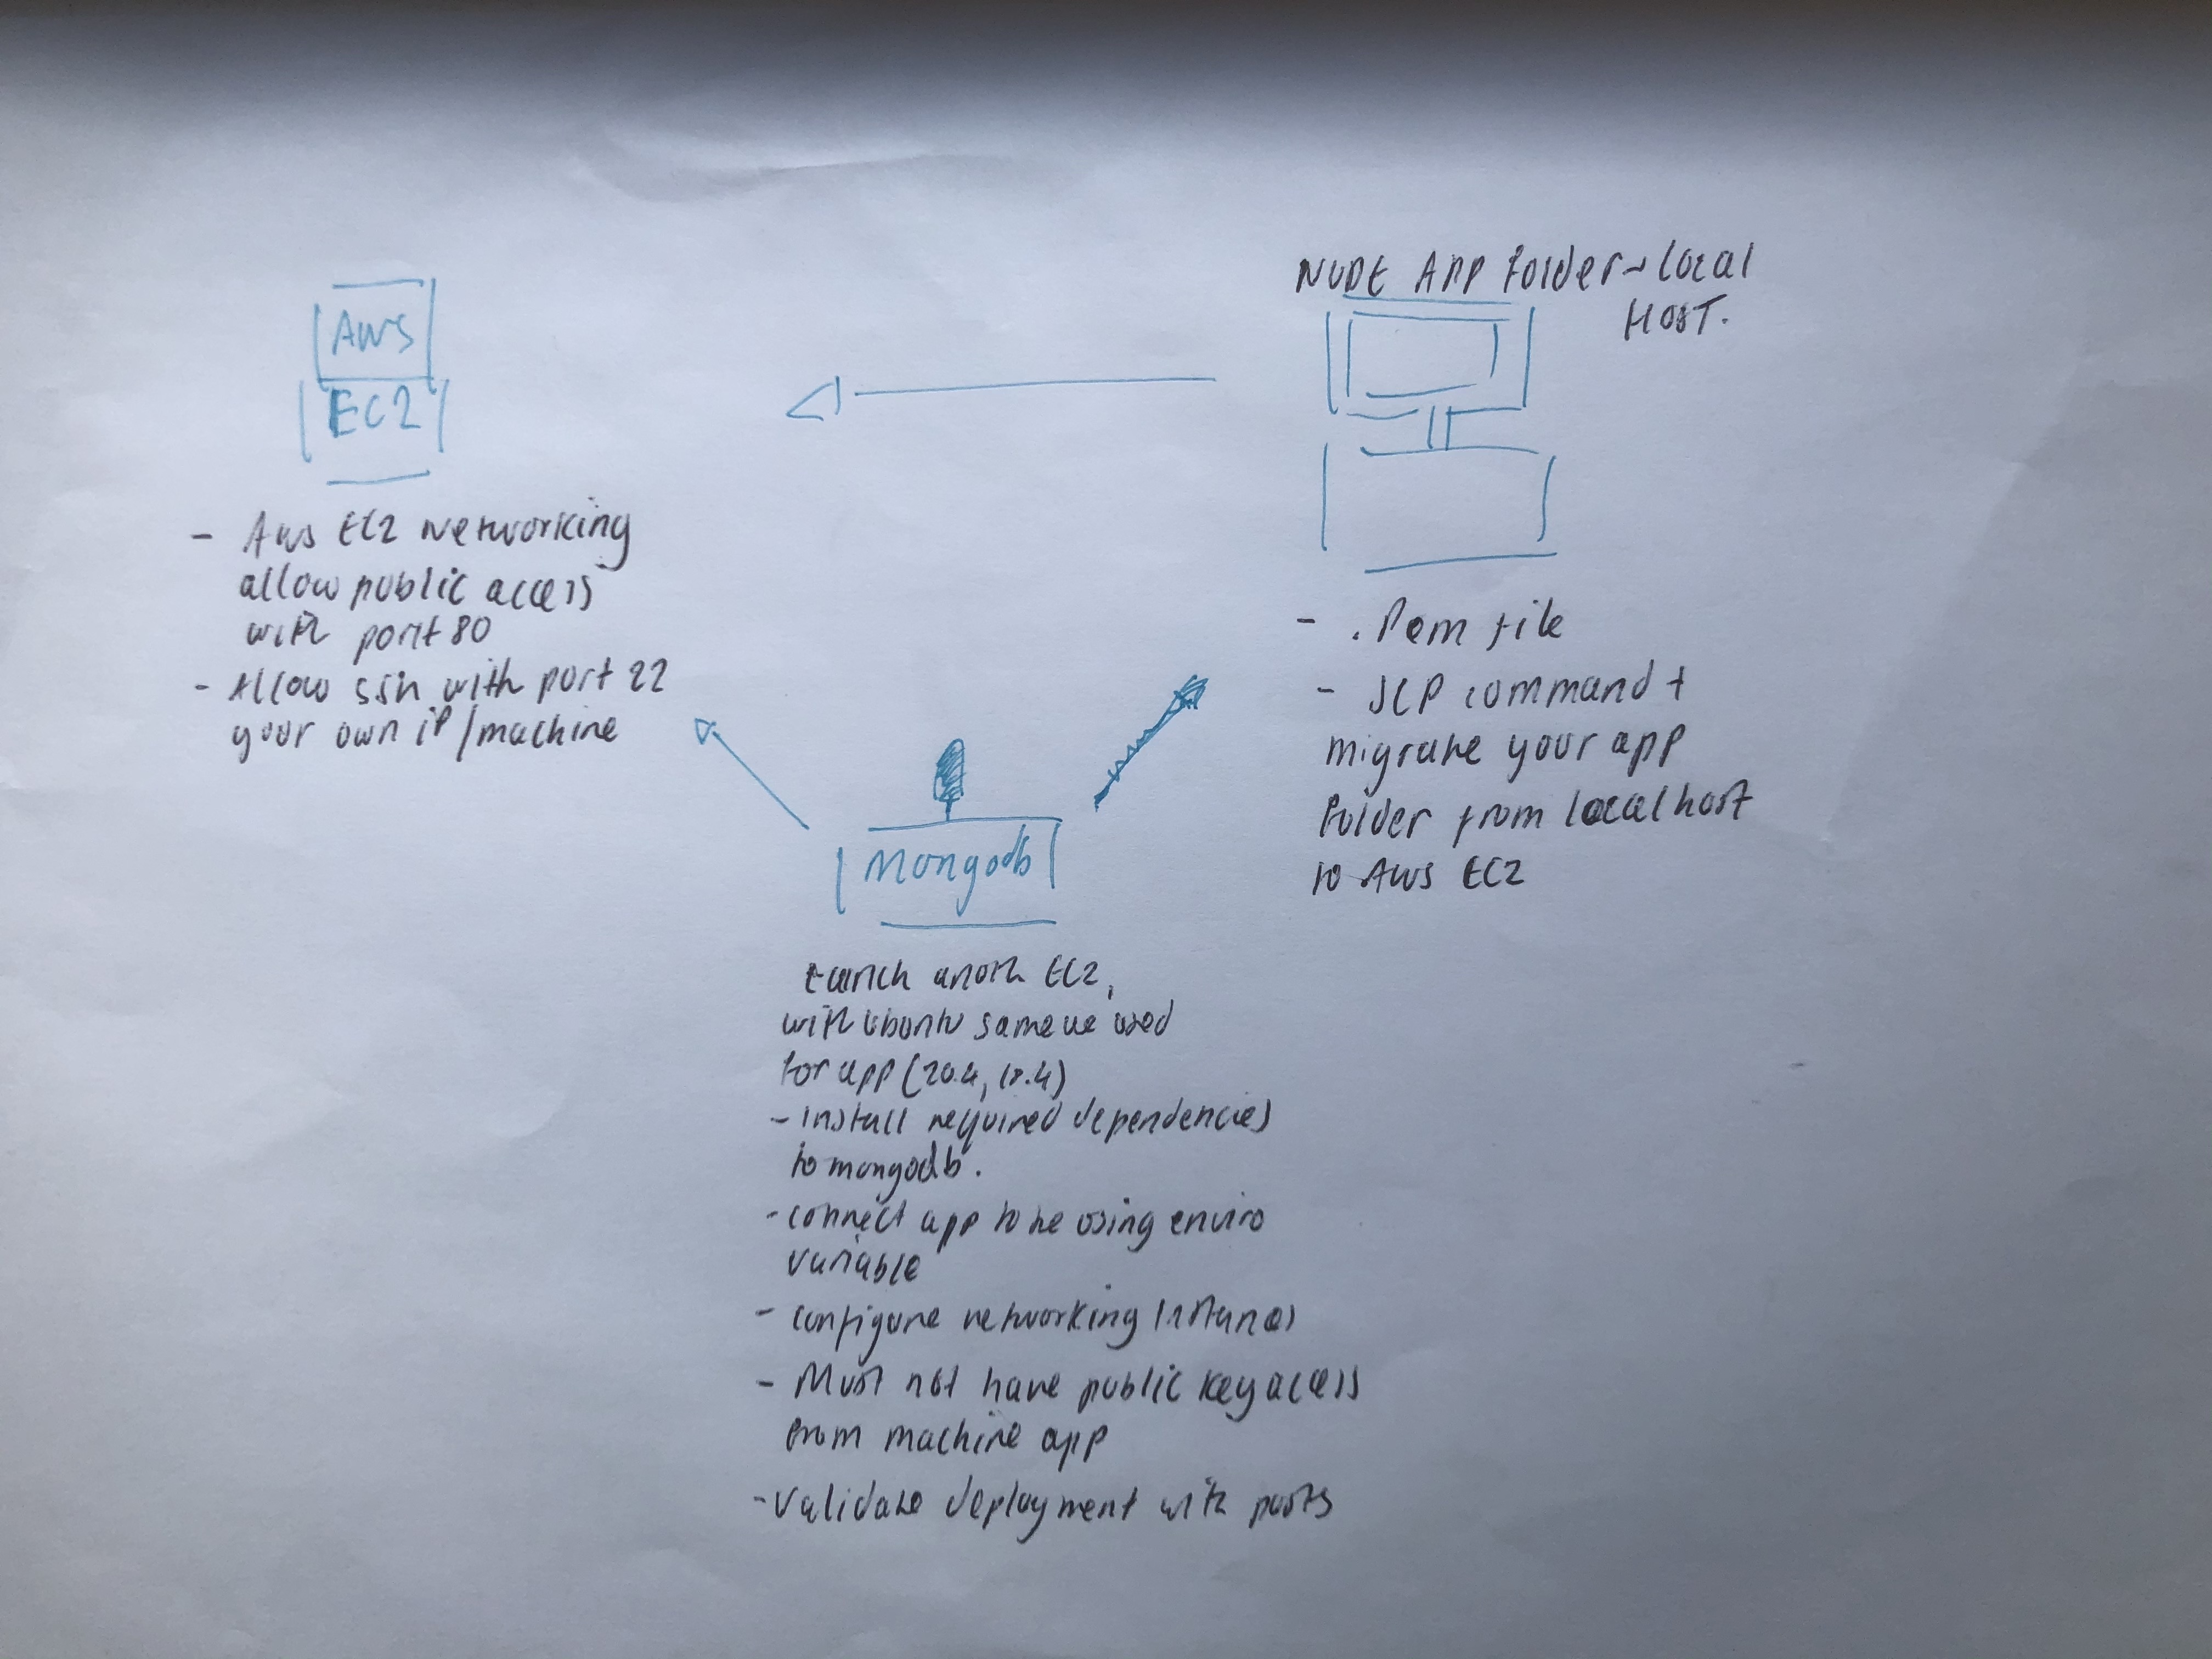 AWS
EC2
- AWS EC2 Networking
allow public access
with port 80
- Allow ssh with port 22
your own iP/machine
NODE APP Folder → local
HOST.
- .Pem file
- SCP command +
migrate your app
Folder from localhost
to AWS EC2
Mongodb
EC2,
with Ubuntu same we used
for app (20.4, 18.4)
- install required dependencies
to mongodb.
- connect app to using enviro
variable
- configure networking
- Must not have public key access
from machine app
- validate deployment with ports